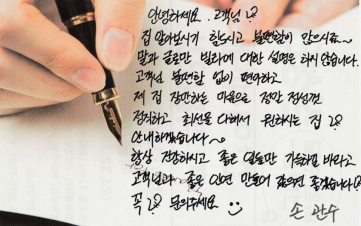 안녕하세요. 고객님
집 알아보시기 힘드시고 불편함이 많으시죠~
말과 글로만 빌라에 대한 설명은 하지 않습니다.
고객님 불편함 없이 편하고
제 집 장만하는 마음으로 정말 정성껏
정직하고 최선을 다해서 원하시는 집
안내하겠습니다~
항상 건강하시고 좋은 일들만 가득하길 바라고
고객님과 좋은 인연 만들어 갔으면 좋겠습니다
꼭 문의주세요
손 관 수